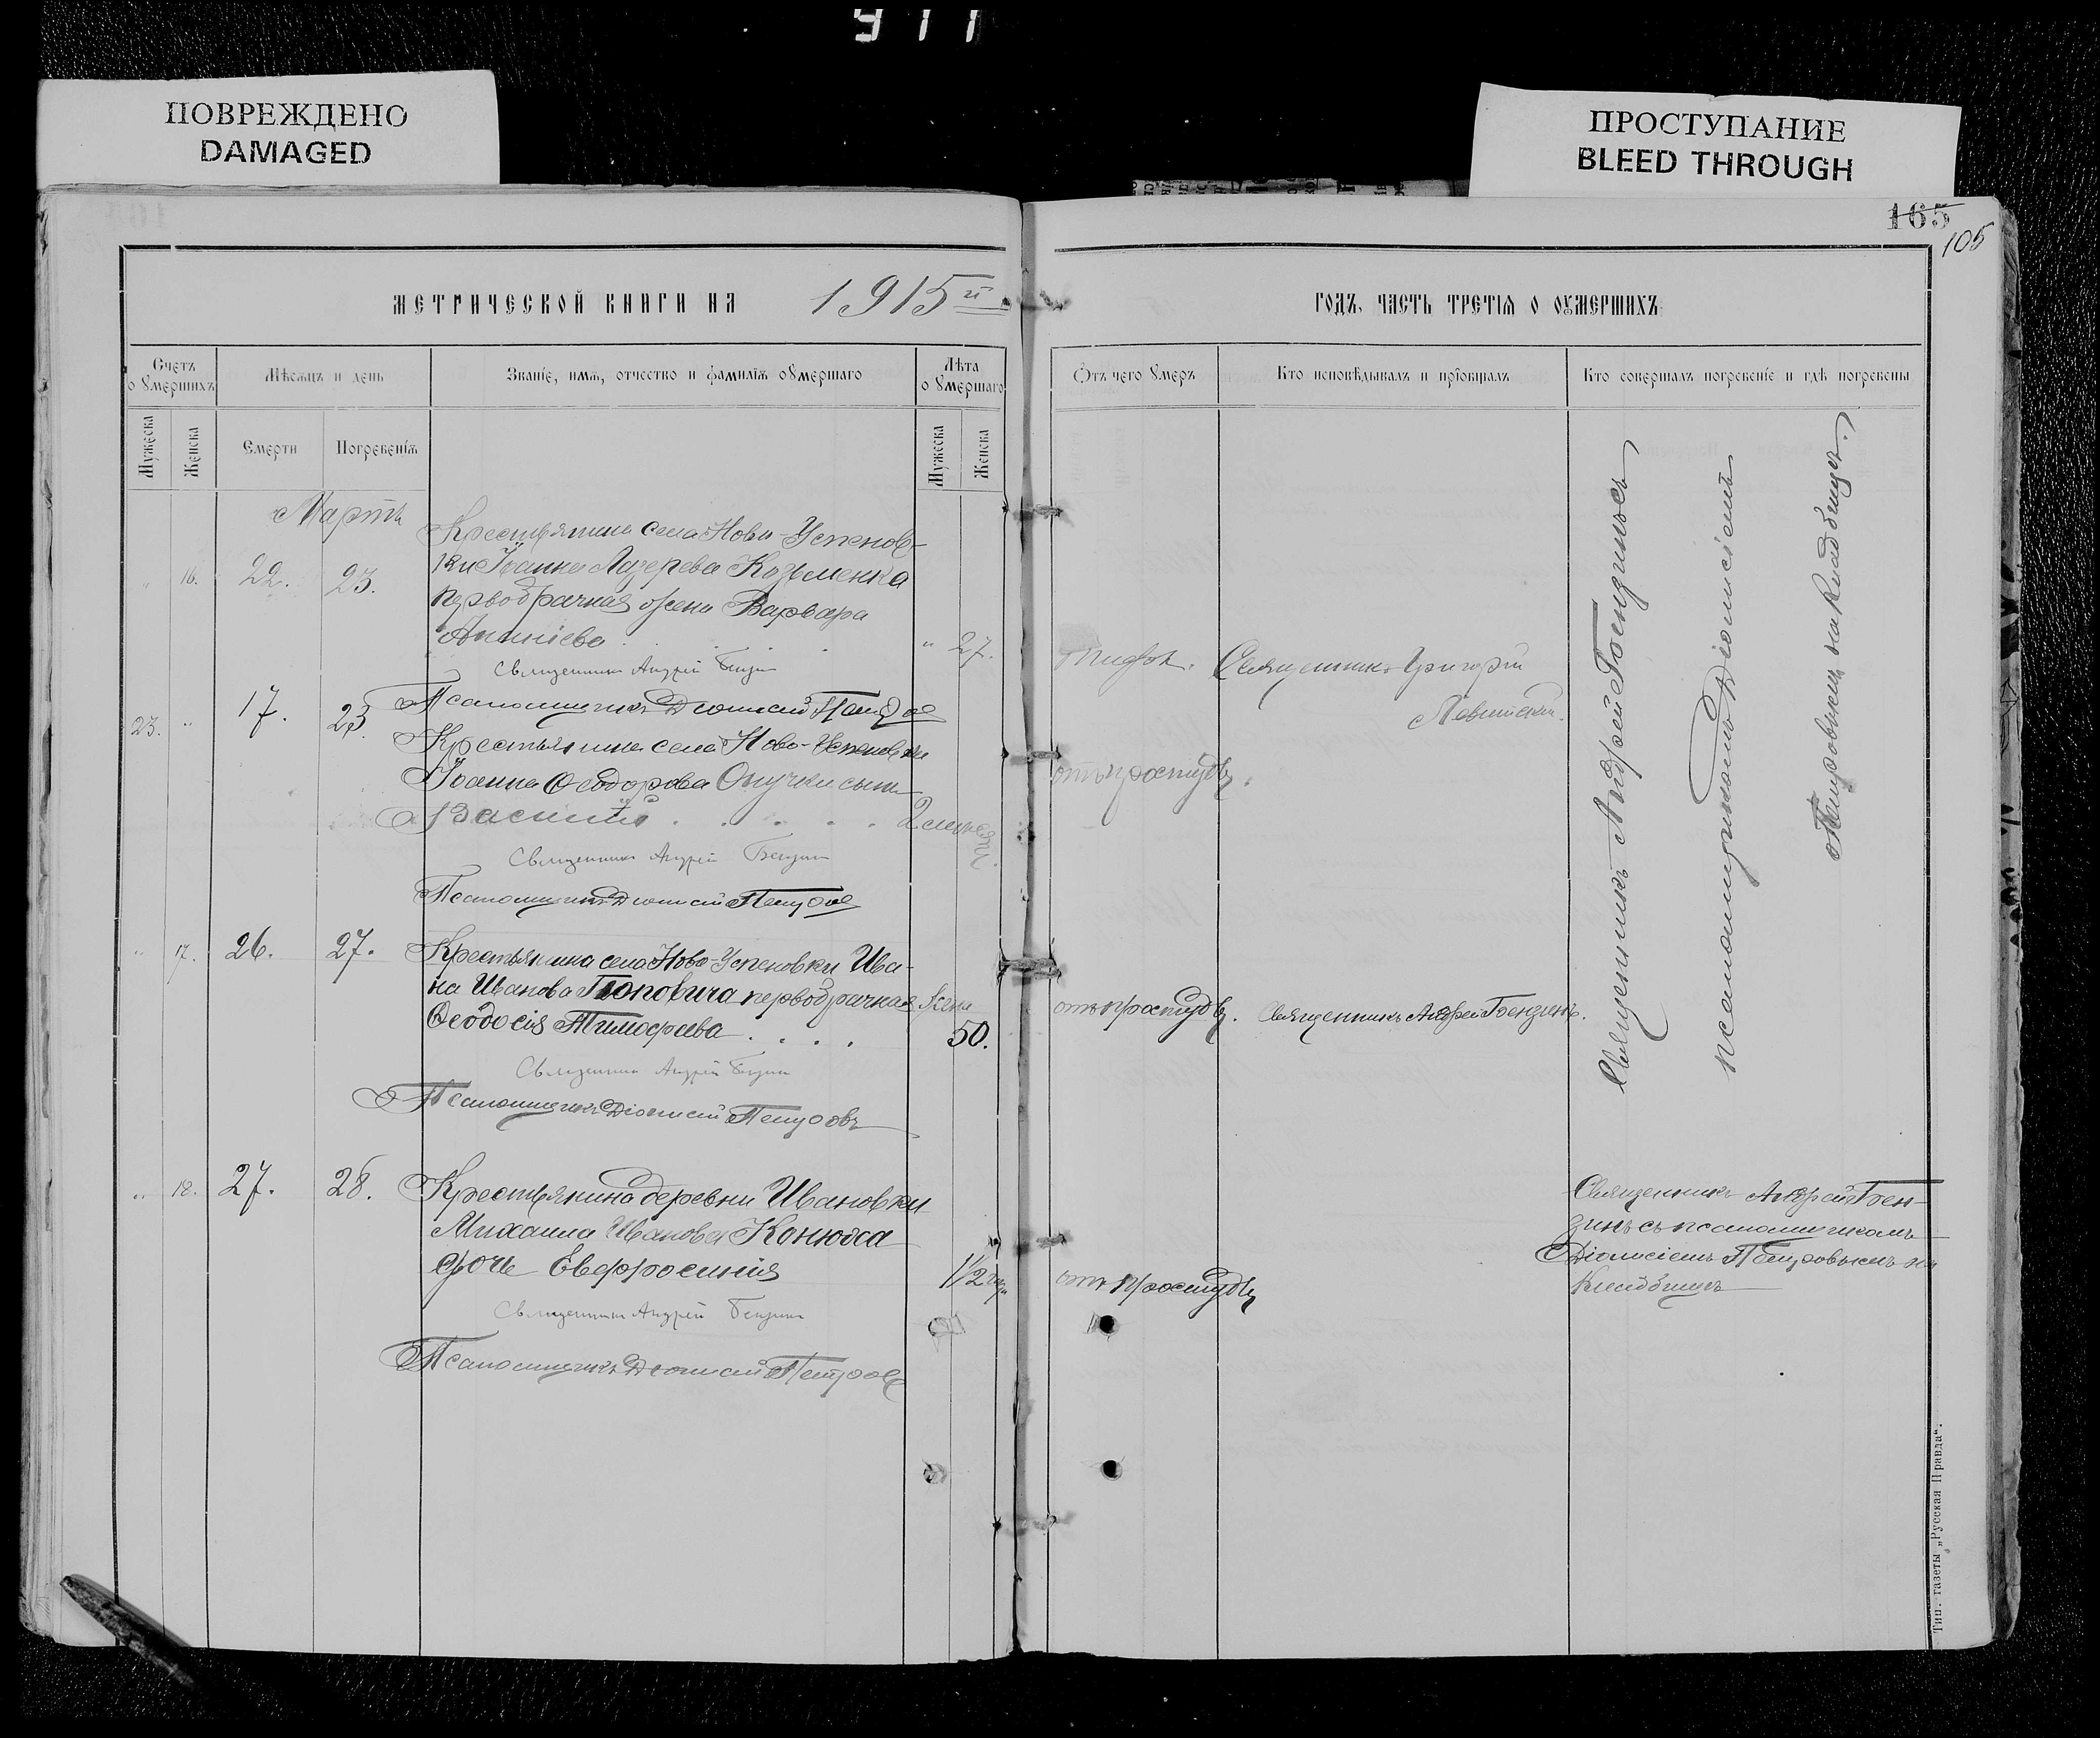 911
ПОВРЕЖДЕНО
DAMAGED
ПРОСТУПАНИЕ
BLEED THROUGH
165
105
МЕТРИЧЕСКОЙ КНИГИ НА 1915й
ГОДЪ, ЧАСТЬ ТРЕТІЯ О ОУМЕРШИХЪ
Счетъ о Умершихъ
Мѣсяцъ и день
Званіе, имя, отчество и фамилія оУмершаго
Лѣта о Умершаго
Отъ чего Умеръ
Кто исповѣдывалъ и пріобщалъ
Кто совершалъ погребеніе и гдѣ погребены
Мужеска
Женска
Смерти
Погребенія
Мужеска
Женска
Мартъ
" 16. 22. 23.
Крестьянина села Ново-Успенов-
ки Іоанна Лазарева Козьменка
первобрачная жена Варвара
Ананіева " 27.
тифъ. Священникъ Григорій
Левитскій.
Священникъ Андрей Бензинъ
Псаломщикъ Діонисій Петровъ
23. " 17. 23
Крестьянина села Ново-Успеновки
Іоанна Ѳеодорова Опучки сынъ
Василій 2 месяц.
отъ простуды.
Священникъ Андрей Бензинъ
Псаломщикъ Діонисій Петровъ
" 17. 26. 27.
Крестьянина села Ново-Успеновки Ива-
на Иванова Поповича первобрачная жена
Ѳеодосія Тимофеева 50.
отъ простуды. Священникъ Андрей Бензинъ.
Священникъ Андрей Бензинъ
Псаломщикъ Діонисій Петровъ
Священникъ Андрей Бензинъ съ
псаломщикомъ Діонисіемъ
Петровымъ на кладбищѣ.
" 18. 27. 28.
Крестьянина деревни Ивановки
Михаила Иванова Конюхса
дочь Евфросинія 1/2 года
отъ простуды
Священникъ Андрей Бен-
зинъ съ псаломщикомъ
Діонисіемъ Петровымъ на
кладбищѣ
Священникъ Андрей Бензинъ
Псаломщикъ Діонисій Петровъ
Тип. газеты „Русская Правда“.